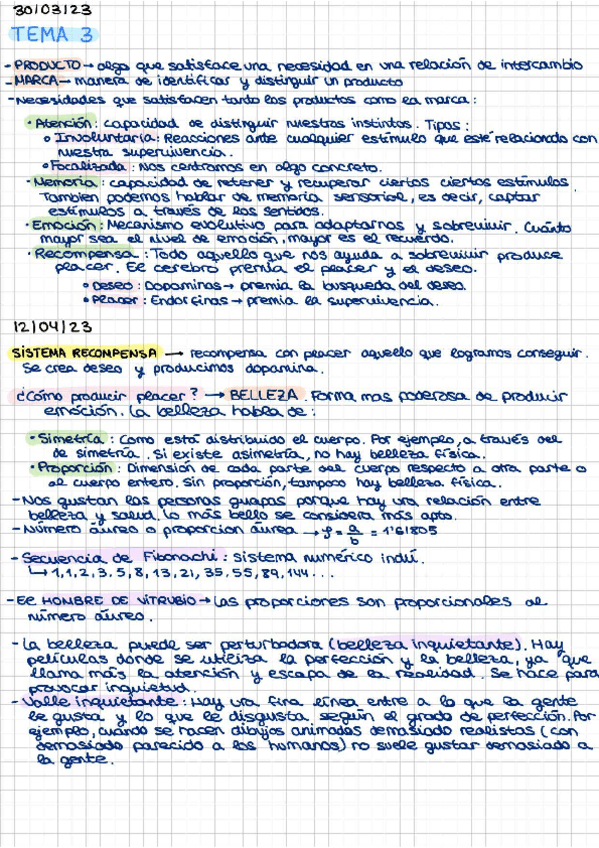 30/03/23
TEMA 3
- PRODUCTO → algo que satisface una necesidad en una relación de intercambio
- MARCA → manera de identificar y distinguir un producto
- Necesidades que satisfacen tanto los productos como la marca:
· Atención: capacidad de distinguir nuestros instintos. Tipos:
o Involuntaria: Reacciones ante cualquier estímulo que esté relacionado con
nuestra supervivencia.
o Focalizada: Nos centramos en algo concreto.
· Memoria: capacidad de retener y recuperar ciertos ciertos estímulos.
Tambien podemos hablar de memoria sensorial, es decir, captar
estímulos a través de los sentidos.
· Emoción: Mecanismo evolutivo para adaptarnos y sobrevivir. Cuánto
mayor sea el nivel de emoción, mayor es el recuerdo.
· Recompensa: Todo aquello que nos ayuda a sobrevivir produce
placer. El cerebro premia el placer y el deseo.
o Deseo: Dopaminas → premia la busqueda del deseo.
o Placer: Endorfinas → premia la supervivencia.
12/04/23
SISTEMA RECOMPENSA → recompensa con placer aquello que logramos conseguir.
Se crea deseo y producimos dopamina.
¿Cómo producir placer? → BELLEZA. Forma mas poderosa de producir
emoción. La belleza habla de:
· Simetría: Como está distribuido el cuerpo. Por ejemplo, a través del
de simetría. Si existe asimetría, no hay belleza física.
· Proporción: Dimensión de cada parte del cuerpo respecto a otra parte o
al cuerpo entero. Sin proporción, tampoco hay belleza física.
- Nos gustan las personas guapas porque hay una relación entre
belleza y salud. Lo más bello se considera más apto.
- Número áureo o proporción áurea → φ = a/b = 1'61805
- Secuencia de Fibonachi: sistema numérico indú.
↳ 1,1,2,3,5,8,13,21,35,55,89,144...
- El HOMBRE DE VITRUBIO → Las proporciones son proporcionales al
número áureo.
- La belleza puede ser perturbadora (belleza inquietante). Hay
películas donde se utiliza la perfección y la belleza, ya que
llama más la atención y escapa de la realidad. Se hace para
provocar inquietud.
- Valle inquietante: Hay una fina línea entre a lo que la gente
le gusta y lo que le disgusta, según el grado de perfección. Por
ejemplo, cuando se hacen dibujos animados demasiado realistas (con
demasiado parecido a los humanos) no suele gustar demasiado a
la gente.